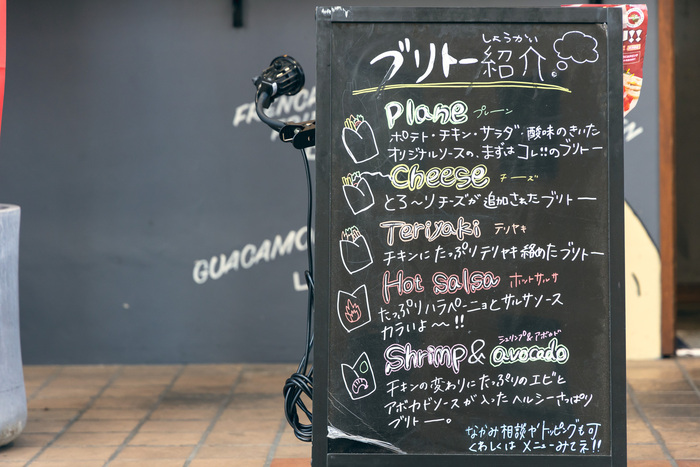 しょうかい
ブリトー紹介。
Plane プレーン
ポテト・チキン・サラダ・酸味のきいた
オリジナルソースの、まずはコレ!!のブリトー
Cheese チーズ
とろ〜リチーズが追加されたブリトー
Teriyaki テリヤキ
チキンにたっぷりテリヤキ絡めたブリトー
Hot salsa ホットサルサ
たっぷりハラペーニョとサルサソース
カラいよ〜!!
シュリンプ&アボカド
Shrimp & avocado
チキンの変わりにたっぷりのエビと
アボカドソースが入ったヘルシーさっぱり
ブリトー。
なかみ相談やトッピングも可
くわしくはメニューみてネ!!
GUACAMO